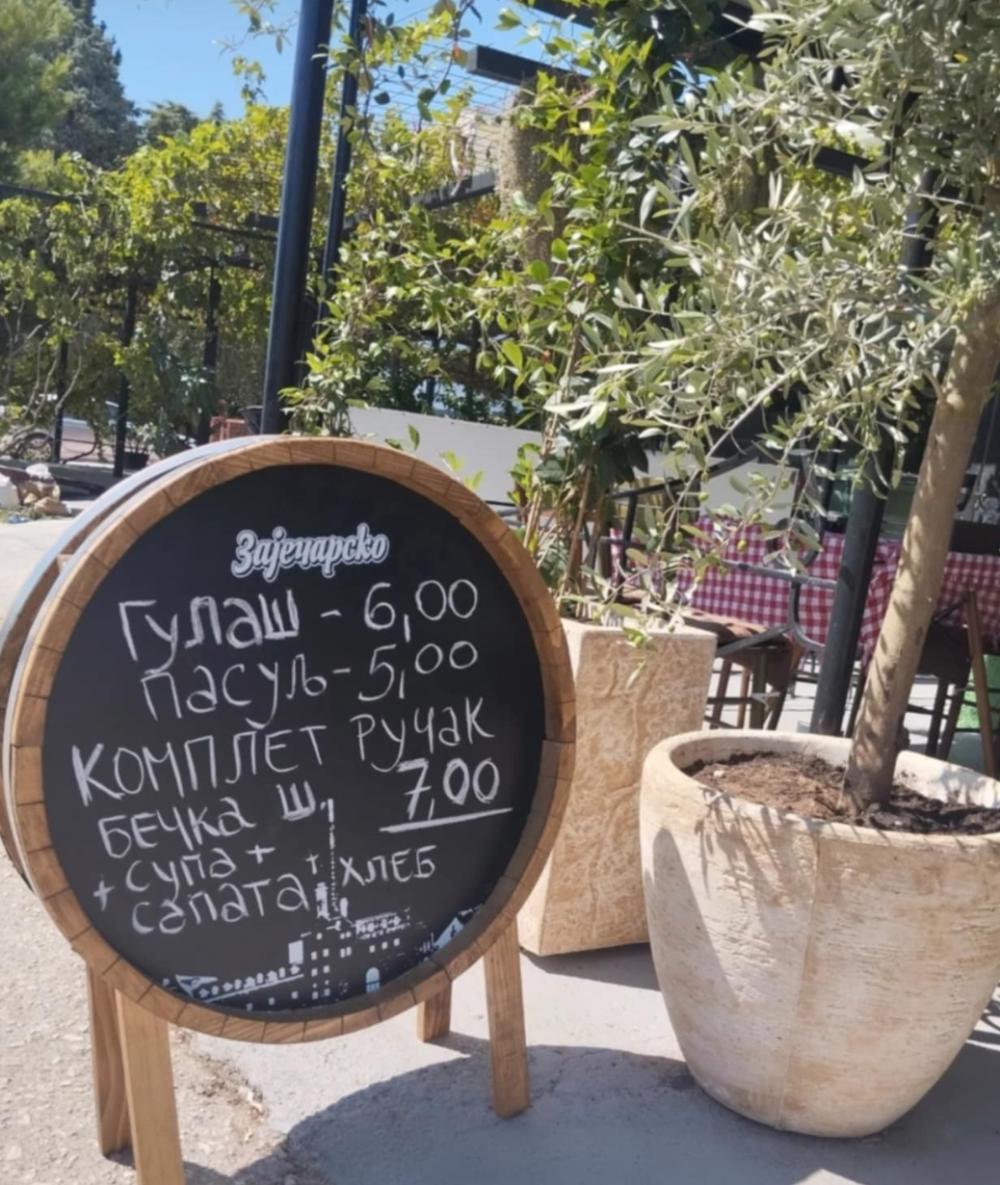 Зајечарско
Гулаш - 6,00
Пасуљ - 5,00
КОМПЛЕТ РУЧАК
БЕЧКа Ш, 7,00
+ Супа +
Салата + ХЛЕБ